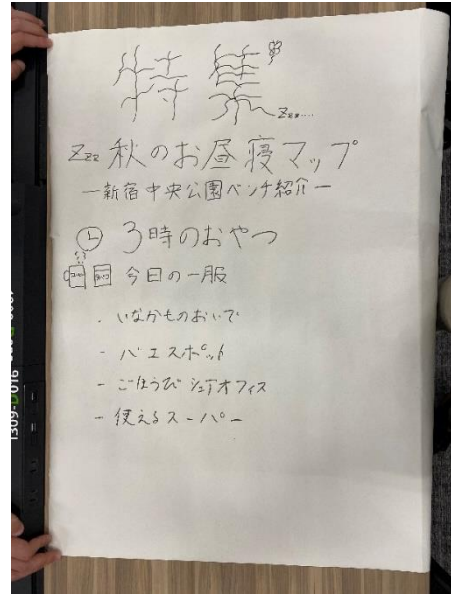 特集
Zzz....
Zzz 秋のお昼寝マップ
―新宿中央公園ベンチ紹介―
3時のおやつ
今日の一服
- いなかものおいで
- バエスポット
- ごほうび シェアオフィス
- 使えるスーパー